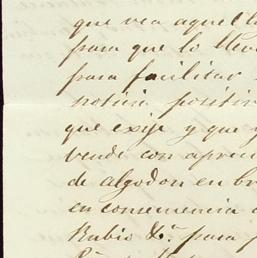 que vea aquel
para que lo lleve
para facilitar
noticia positiv
que exije y que y
vende con apren
de algodon en br
en consecuencia
Rubio &.ª para